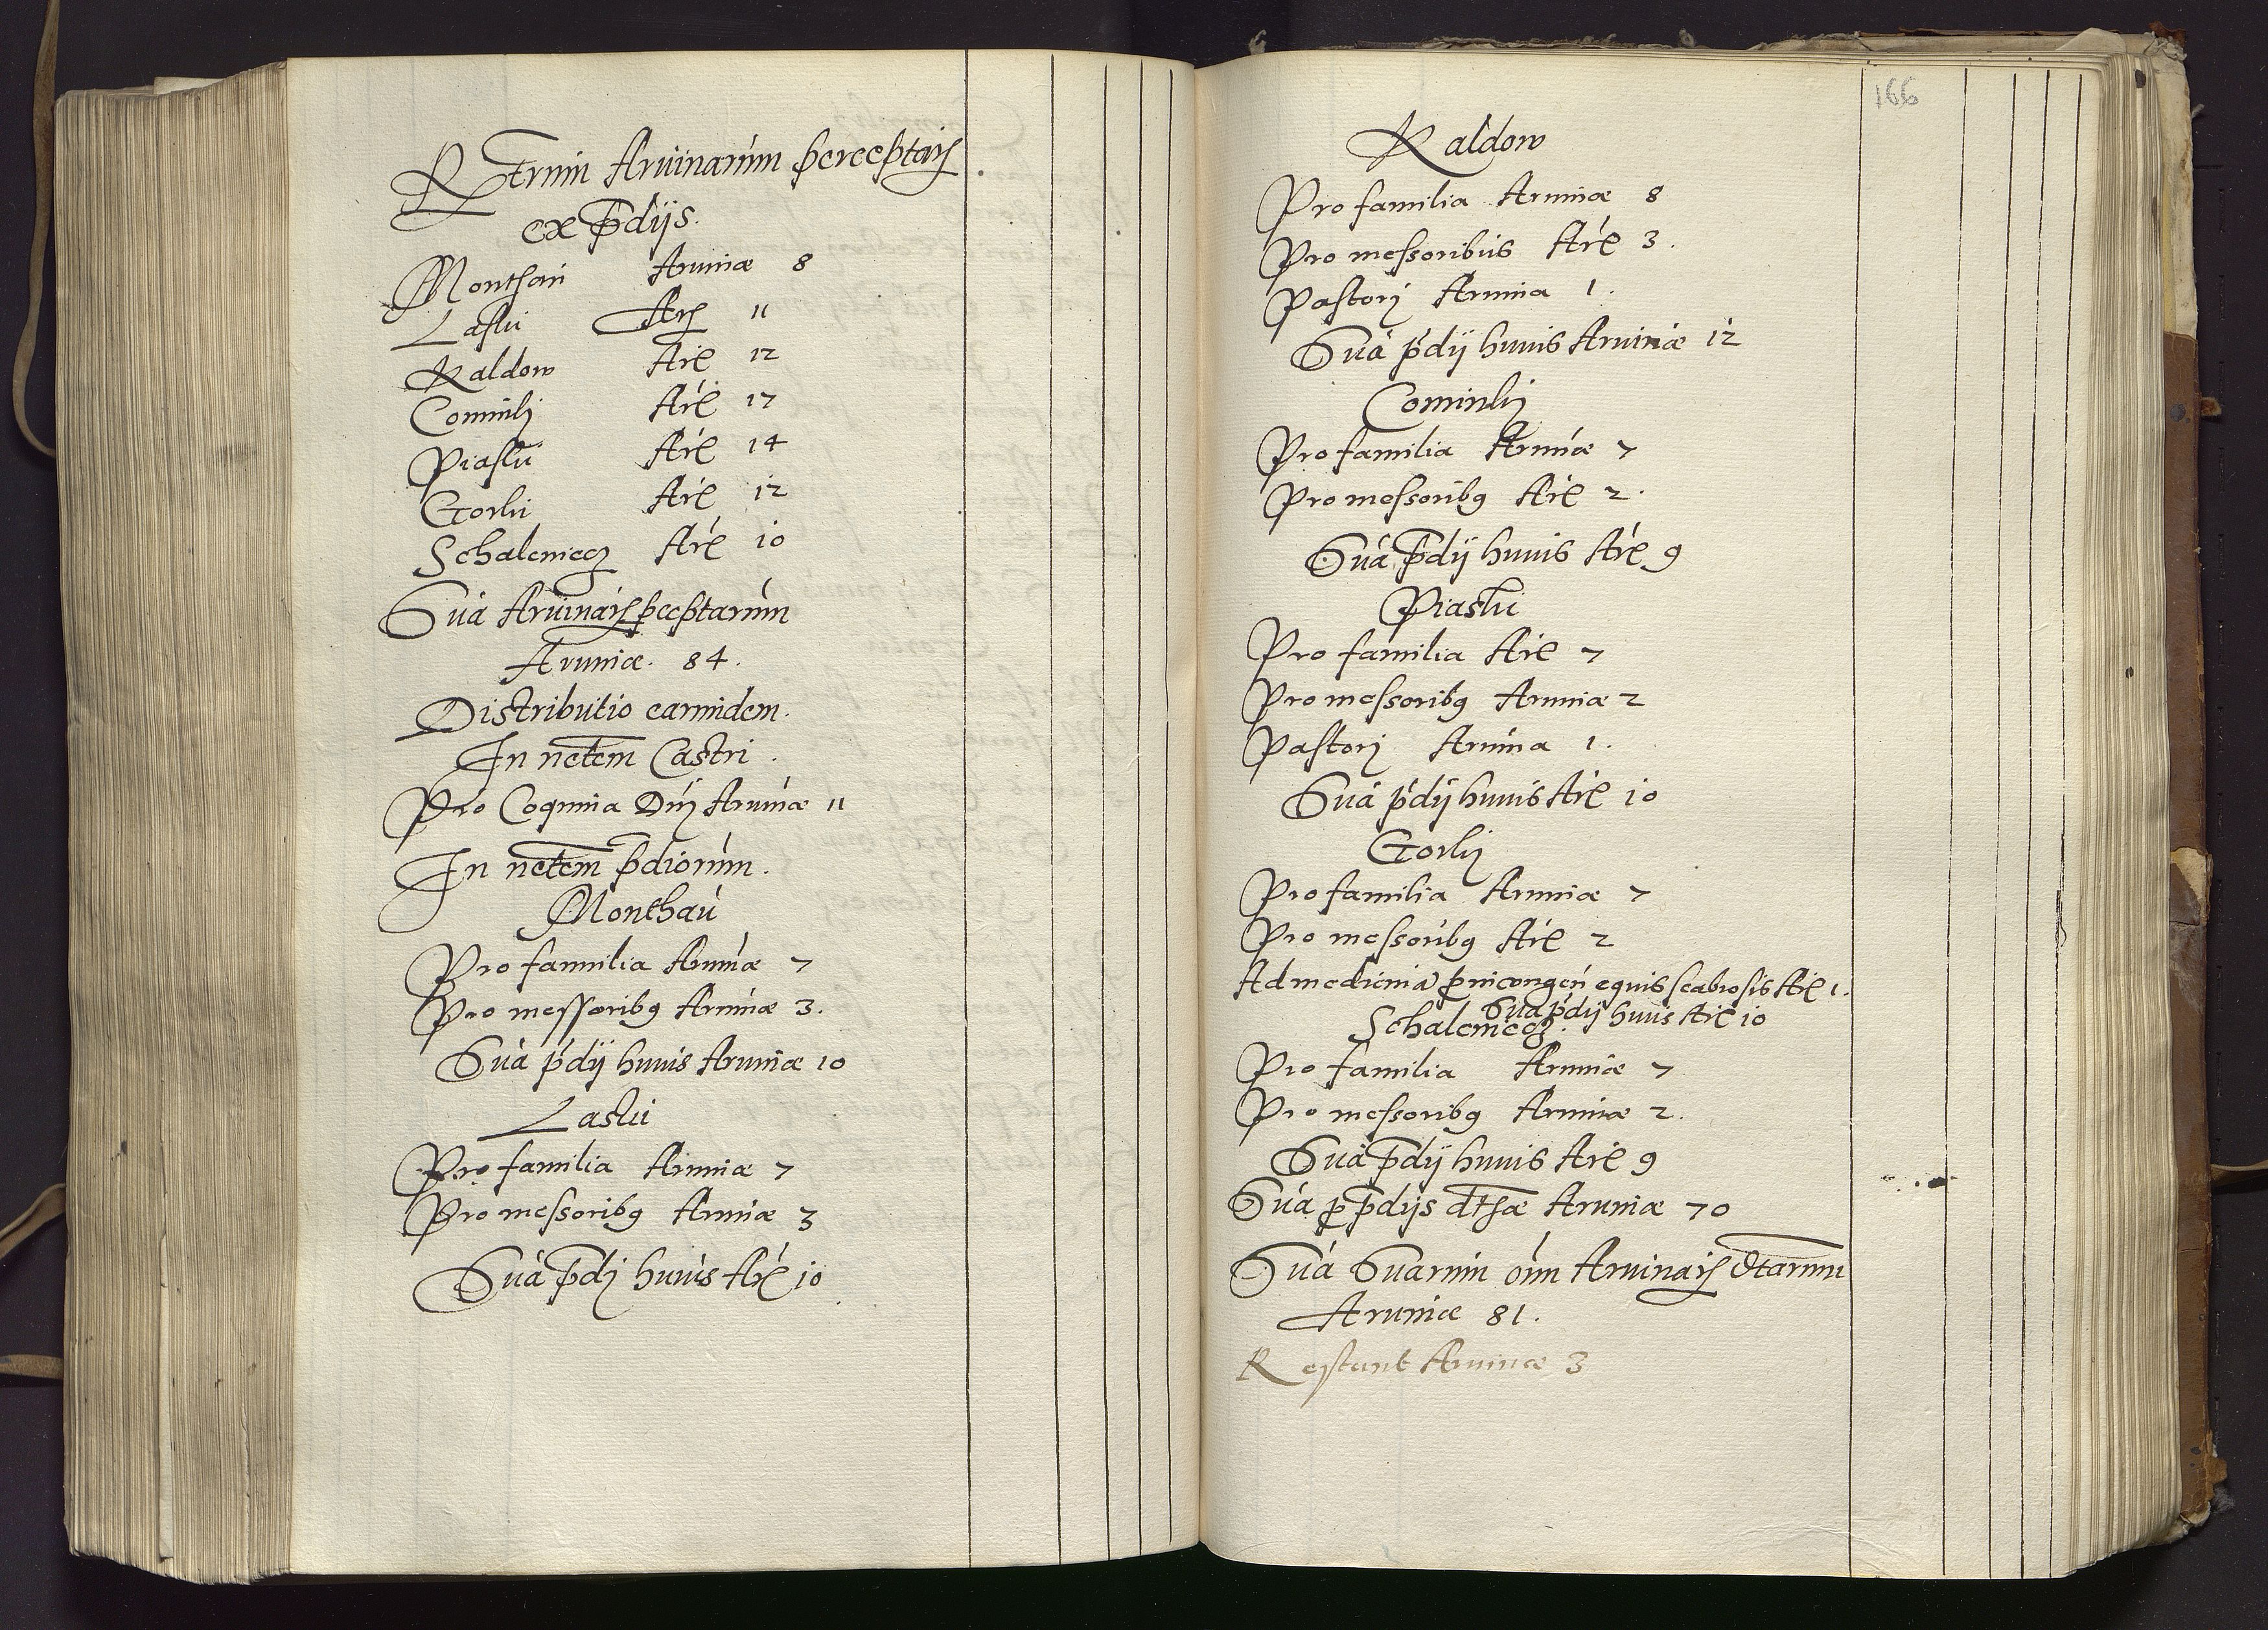 Rtrum Aruinarum perceptarum
ex pdijs.
Monthaú Aruinæ 8
Lasúi Arz 11
Kaldow Aré 12
Cominlj Aré 17
Piaslú Aré 14
Gorlú Aré 12
Schalemiecz Aré 10
Sua Aruinarz pceptarum
Aruinæ. 84.
Distributio earundem.
In netem Castri.
Pro Coquina Dnj Aruinæ 11
In netem pdiorum.
Monthaú
Pro familia Aruinæ 7
Pro messoribg Aruinæ 3.
Sua pdij huius Aruinæ 10
Lasúi
Pro familia Aruinæ 7
Pro messoribg Aruinæ 3
Sua pdj huius Aré 10
166
Kaldow
Pro familia Aruinæ 8
Pro messoribus Aré 3.
Pastorj Aruina 1.
Sua pdij huius Aruinæ 12
Cominlj
Pro familia Aruinæ 7
Pro messoribg Aré 2.
Sua pdij huius Aré 9
Piaslú
Pro familia Aré 7
Pro messoribg Aruinæ 2
Pastorj Aruina 1.
Sua pdij huius Aré 10
Gorlij
Pro familia Aruinæ 7
Pro messoribg Aré 2
Ad medicina equis scabiosis Aré 1.
Sua pdij huius Aré 10
Schalemiecz.
Pro familia Aruinæ 7
Pro messoribg Aruinæ 2.
Sua pdij huius Aré 9
Sua p pdijs dtsæ Aruinæ 70
Sua Suarum oium Aruinarz dtarum
Aruinæ 81.
Restant Aruinæ 3